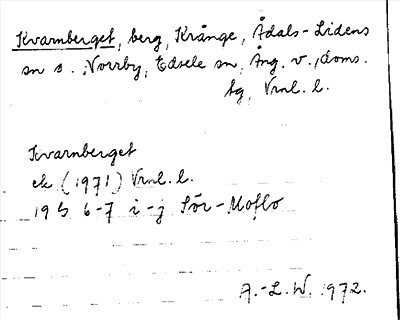 Kvarnberget, berg, Krånge, Ådals-Lidens
sn o. Norrby, Edsele sn, Ång. v., doms.
tg, Vrnl. l.
Kvarnberget
ek (1971) Vrnl. l.
19 G 6-7 i-j Sör-Moflo
A.-L. W. 1972.